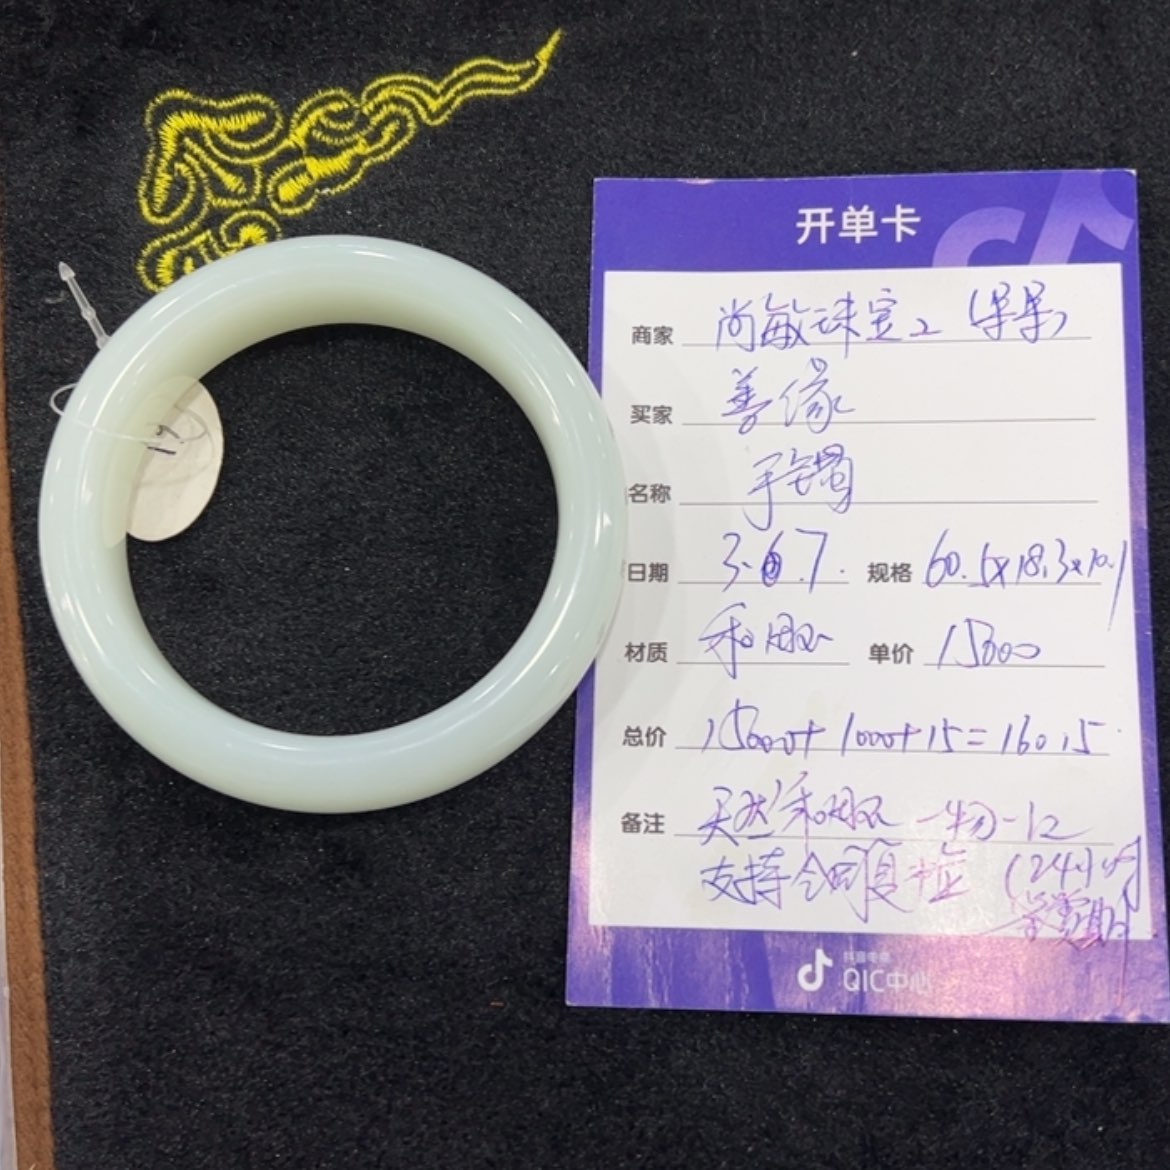 开单卡
商家 尚敏珠宝2 (果果)
买家 善缘
名称 手镯
日期 3.7. 规格 60.5x18.3x10.1
材质 和田玉 单价 15000
总价 15000+1000+15=16015
备注 天然和田玉 一物一证
支持全国复检 (24小时
鉴赏期)
抖音电商
QIC中心